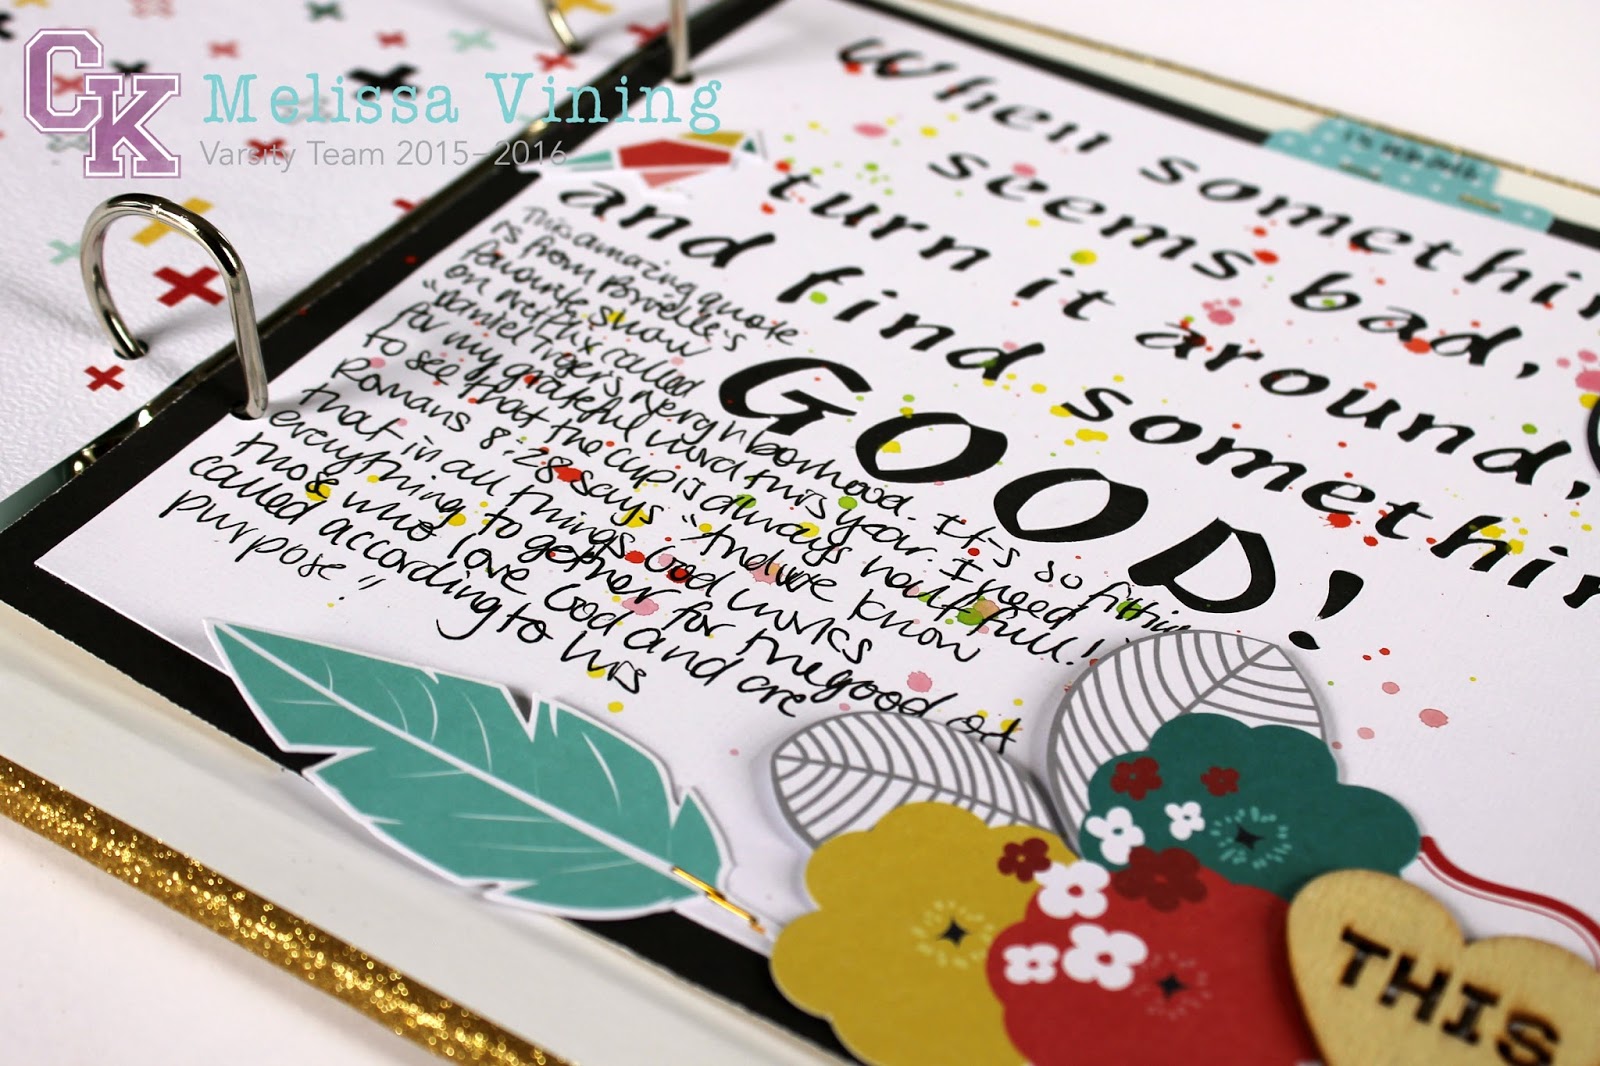 CK
Melissa Vining
Varsity Team 2015–2016
When somethin
seems bad,
turn it around,
and find somethin
GOOD!
This amazing quote
is from Brielle's
favourite show
on netflix called
"Daniel Tigers neighborhood. It's so fittin
for my grateful word this year. I need
to see that the cup is always half full!
Romans 8:28 says "And we know
that in all things God works
everything together for the good of
those who love God and are
called according to his
purpose."
THIS